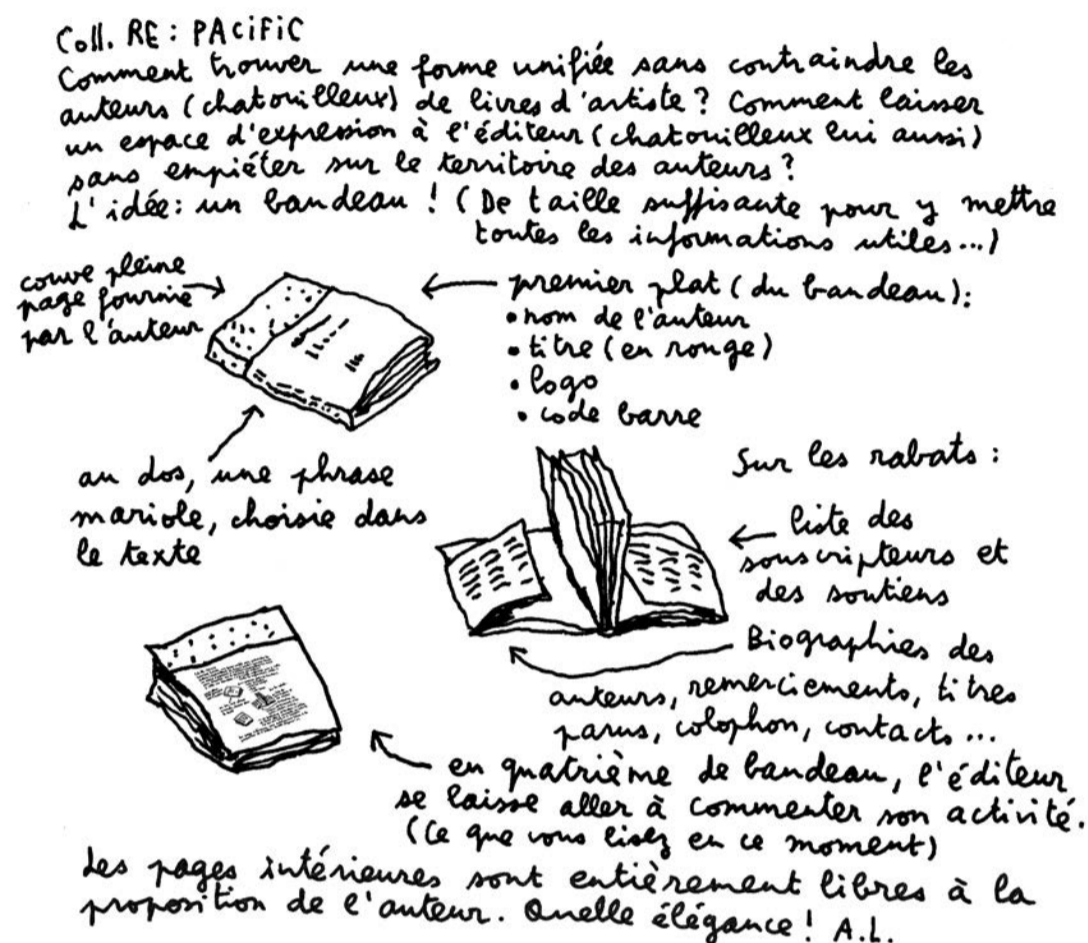 Coll. RE : PAciFiC
Comment trouver une forme unifiée sans contraindre les
auteurs (chatouilleux) de livres d'artiste ? Comment laisser
un espace d'expression à l'éditeur (chatouilleux lui aussi)
sans empiéter sur le territoire des auteurs ?
L'idée : un bandeau ! (De taille suffisante pour y mettre
toutes les informations utiles...)
couve pleine
page fournie
par l'auteur
premier plat (du bandeau) :
• nom de l'auteur
• titre (en rouge)
• logo
• code barre
au dos, une phrase
mariole, choisie dans
le texte
Sur les rabats :
liste des
souscripteurs et
des soutiens
Biographies des
auteurs, remerciements, titres
parus, colophon, contacts ...
en quatrième de bandeau, l'éditeur
se laisse aller à commenter son activité.
(Ce que vous lisez en ce moment)
Les pages intérieures sont entièrement libres à la
proposition de l'auteur. Quelle élégance ! A.L.